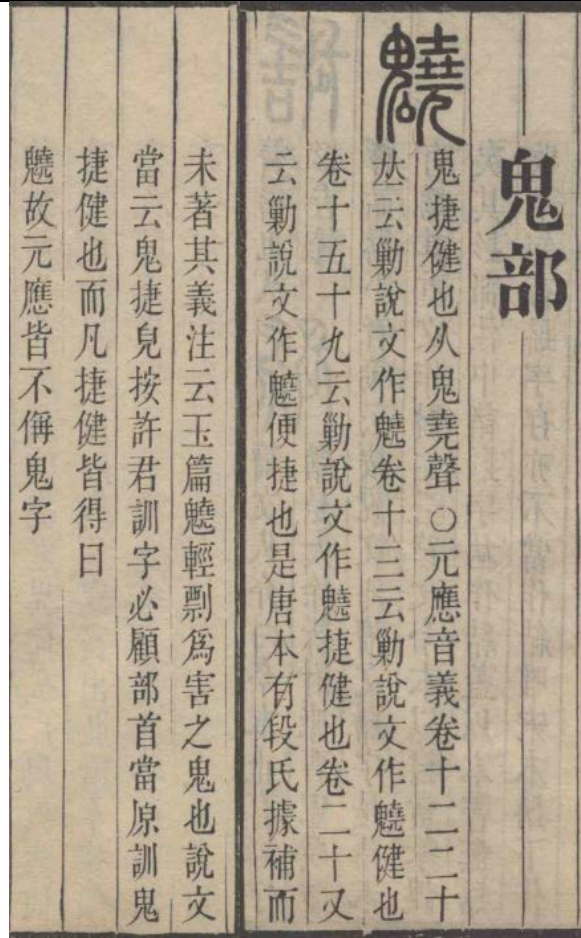 鬼部
魑
鬼捷健也从鬼堯聲○元應音義卷十二二十
㐺云勦說文作魑卷十三云勦說文作魑健也
卷十五十九云勦說文作魑捷健也卷二十又
云勦說文作魑便捷也是唐本有段氏據補而
未著其義注云玉篇魑輕剽爲害之鬼也說文
當云鬼捷皃按許君訓字必顧部首當原訓鬼
捷健也而凡捷健皆得曰
魑故元應皆不偁鬼字